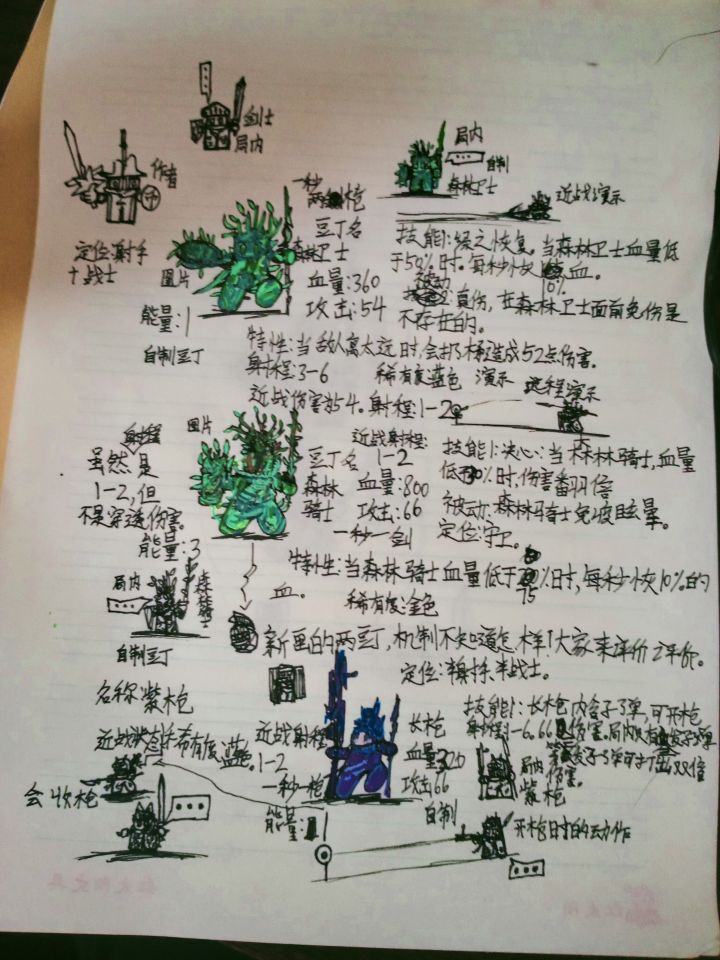 剑士
局内
作者
定位:射手
十战士
一秒
两枪
豆丁名
森林卫士
血量:360
攻击:54
图片
能量:1
自制豆丁
局内
自制
森林卫士
近战演示
技能1:绿之恢复。当森林卫士血量低
于50%时。每秒恢10%血。
被动:真伤,在森林卫士面前免伤是
不存在的。
特性:当敌人离太远时,会扔矛造成52点伤害。
射程:3-6
稀有度蓝色 演示 远程演示
近战伤害为54。射程:1-2
射程
虽然是
1-2,但
不是穿透伤害。
能量:3
图片
近战射程:
1-2
豆丁名
森林
骑士
血量:800
攻击:66
一秒一剑
技能1:决心:当森林骑士,血量
低于30%时,伤害翻倍
被动:森林骑士免疫眩晕。
定位:守卫。
特性:当森林骑士血量低于75%时,每秒恢10%的
血。
稀有度:金色
局内
森林骑士
自制豆丁
新画的两豆丁,机制不知道怎样!大家来评价评价。
定位:半射手半战士。
名称:紫枪
近战状态
稀有度:蓝色
近战射程
1-2
一秒一枪
能量:
会收枪
长枪
血量320
攻击66
自制
技能1:长枪内含子弹,可开枪
射程1-6,66伤害。局内
子弹可打出双倍
伤害。
局内
紫枪
开枪时的动作